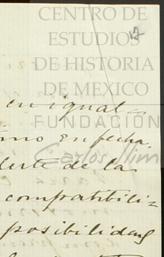 CENTRO DE
ESTUDIOS
DE HISTORIA
DE MEXICO
FUNDACIÓN
Carlos Slim
17
en igual
en fecha
de la
compatibili-
posibilidad